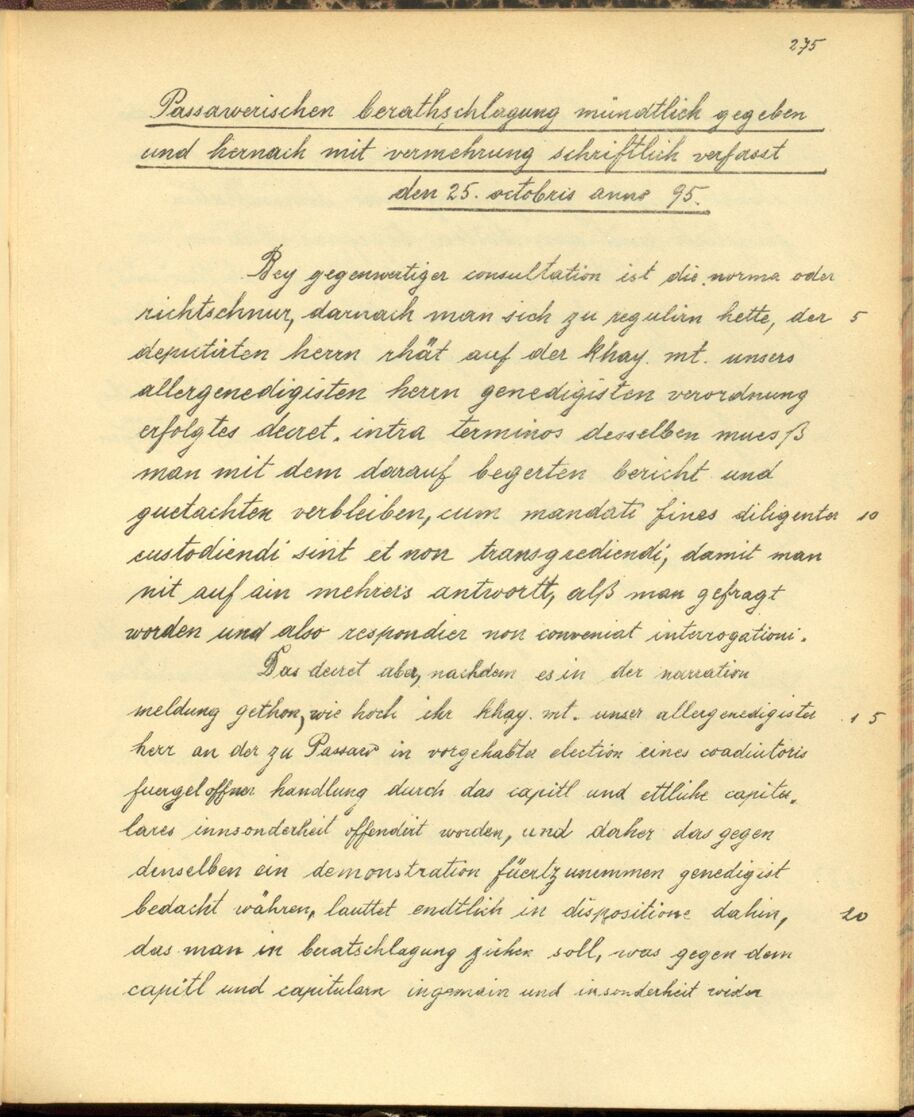 275
Passawerischen berathschlagung mündtlich gegeben
und hernach mit vermehrung schriftlich verfasst
den 25. octobris anno 95.
Bey gegenwertiger consultation ist die norma oder
richtschnur, darnach man sich zu regulirn hette, der 5
deputirten herrn rhät auf der khay. mt. unsers
allergenedigisten herrn genedigisten verordnung
erfolgtes decret. intra terminos desselben muesß
man mit dem darauf begerten bericht und
guetachten verbleiben, cum mandati fines diligenter 10
custodiendi sint et non transgrediendi, damit man
nit auf ain mehrers antwortt, alß man gefragt
worden und also respondier non conveniat interrogationi.
Das decret aber, nachdem es in der narration
meldung gethon, wie hoch ihr khay. mt. unser allergenedigister 15
herr an der zu Passaw in vorgehabter election eines coadiutoris
fuergeloffner handlung durch das capitl und ettliche capitu-
lares innsonderheit offendirt worden, und daher das gegen
denselben ein demonstration füertzunemmen genedigist
bedacht währen, lauttet endtlich in dispositione dahin, 20
das man in beratschlagung ziehen soll, was gegen dem
capitl und capitularn ingemain und insonderheit wider